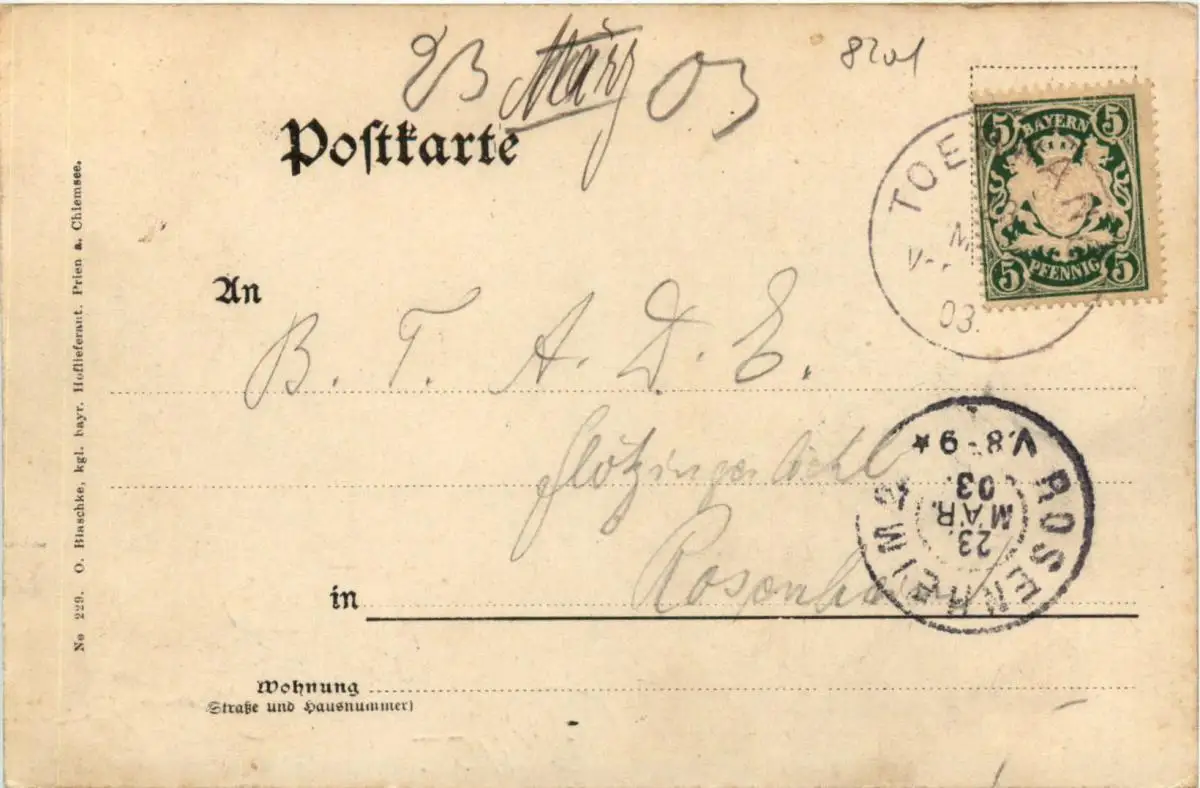 23 März 03
8201
Postkarte
5 BAYERN 5
5 PFENNIG 5
03.
An
B. T. A. D. E.
V.8-9 *
ROSENHEIM 2
23. MAR. 03.
in Rosenheim
Wohnung
(Straße und Hausnummer)
No 229. O. Blaschke, kgl. bayr. Hoflieferant. Prien a. Chiemsee.